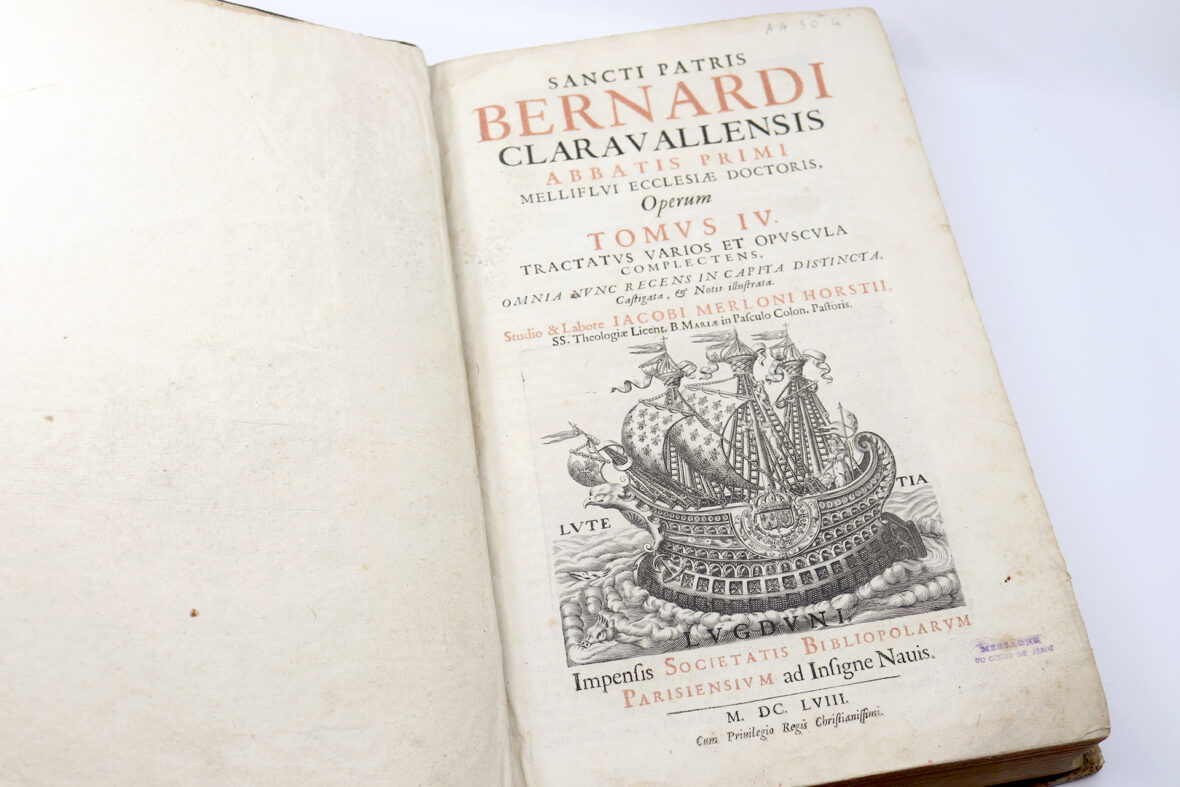 AA 30 G
SANCTI PATRIS
BERNARDI
CLARAVALLENSIS
ABBATIS PRIMI
MELLIFLVI ECCLESIÆ DOCTORIS,
Operum
TOMVS IV.
TRACTATVS VARIOS ET OPVSCVLA
COMPLECTENS,
OMNIA NVNC RECENS IN CAPITA DISTINCTA,
Caſtigata, & Notis illuſtrata.
Studio & Labore IACOBI MERLONI HORSTII,
SS. Theologiæ Licent. B. MARIÆ in Paſculo Colon. Paſtoris.
LVTE TIA
LVGDVNI,
Impenſis SOCIETATIS BIBLIOPOLARVM
PARISIENSIVM ad Inſigne Nauis.
M. DC. LVIII.
Cum Priuilegio Regis Chriſtianiſſimi.
MESSAGER
DU COEUR DE JÉSUS